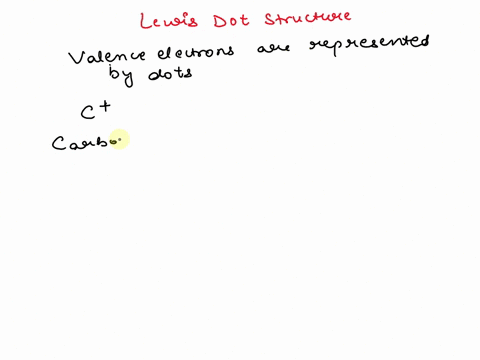 Lewis Dot Structure
Valence electrons are represented
by dots
C+
Carbo